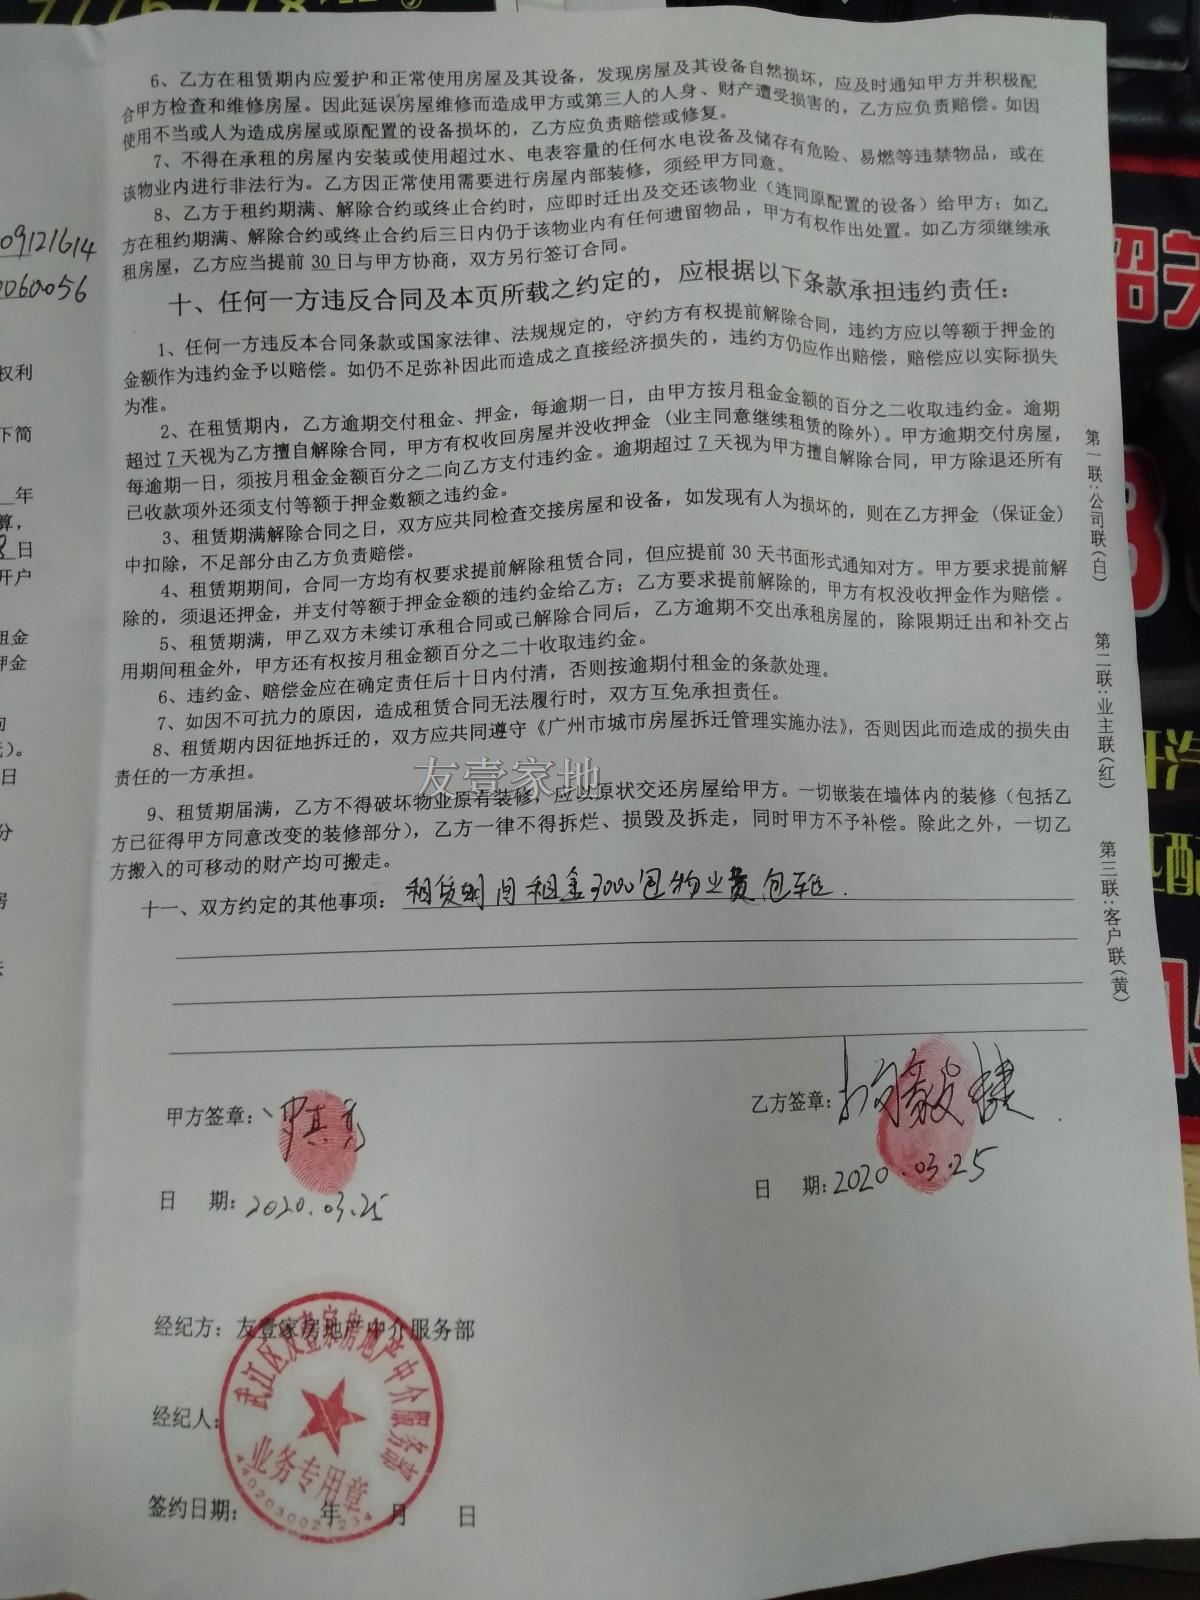 7776778
09121614
0060056
权利
下简
年
算,
8日
开户
租金
押金
日
分
6、乙方在租赁期内应爱护和正常使用房屋及其设备，发现房屋及其设备自然损坏，应及时通知甲方并积极配
合甲方检查和维修房屋。因此延误房屋维修而造成甲方或第三人的人身、财产遭受损害的，乙方应负责赔偿。如因
使用不当或人为造成房屋或原配置的设备损坏的，乙方应负责赔偿或修复。
7、不得在承租的房屋内安装或使用超过水、电表容量的任何水电设备及储存有危险、易燃等违禁物品，或在
该物业内进行非法行为。乙方因正常使用需要进行房屋内部装修，须经甲方同意。
8、乙方于租约期满、解除合约或终止合约时，应即时迁出及交还该物业（连同原配置的设备）给甲方；如乙
方在租约期满、解除合约或终止合约后三日内仍于该物业内有任何遗留物品，甲方有权作出处置。如乙方须继续承
租房屋，乙方应当提前 30 日与甲方协商，双方另行签订合同。
十、任何一方违反合同及本页所载之约定的，应根据以下条款承担违约责任：
1、任何一方违反本合同条款或国家法律、法规规定的，守约方有权提前解除合同，违约方应以等额于押金的
金额作为违约金予以赔偿。如仍不足弥补因此而造成之直接经济损失的，违约方仍应作出赔偿，赔偿应以实际损失
为准。
2、在租赁期内，乙方逾期交付租金、押金，每逾期一日，由甲方按月租金金额的百分之二收取违约金。逾期
超过 7 天视为乙方擅自解除合同，甲方有权收回房屋并没收押金（业主同意继续租赁的除外）。甲方逾期交付房屋，
每逾期一日，须按月租金金额百分之二向乙方支付违约金。逾期超过 7 天视为甲方擅自解除合同，甲方除退还所有
已收款项外还须支付等额于押金数额之违约金。
3、租赁期满解除合同之日，双方应共同检查交接房屋和设备，如发现有人为损坏的，则在乙方押金（保证金）
中扣除，不足部分由乙方负责赔偿。
4、租赁期期间，合同一方均有权要求提前解除租赁合同，但应提前 30 天书面形式通知对方。甲方要求提前解
除的，须退还押金，并支付等额于押金金额的违约金给乙方；乙方要求提前解除的，甲方有权没收押金作为赔偿。
5、租赁期满，甲乙双方未续订承租合同或已解除合同后，乙方逾期不交出承租房屋的，除限期迁出和补交占
用期间租金外，甲方还有权按月租金额百分之二十收取违约金。
6、违约金、赔偿金应在确定责任后十日内付清，否则按逾期付租金的条款处理。
7、如因不可抗力的原因，造成租赁合同无法履行时，双方互免承担责任。
8、租赁期内因征地拆迁的，双方应共同遵守《广州市城市房屋拆迁管理实施办法》，否则因此而造成的损失由
责任的一方承担。
友壹家地
9、租赁期届满，乙方不得破坏物业原有装修，应以原状交还房屋给甲方。一切嵌装在墙体内的装修（包括乙
方已征得甲方同意改变的装修部分），乙方一律不得拆烂、损毁及拆走，同时甲方不予补偿。除此之外，一切乙
方搬入的可移动的财产均可搬走。
十一、双方约定的其他事项：租赁期间租金3000包物业费包车位.
第一联：公司联（白） 第二联：业主联（红） 第三联：客户联（黄）
甲方签章：
乙方签章：
日 期：2020.03.25
日 期：2020.03.25
经纪方：友壹家房地产中介服务部
武江区友壹家房地产中介服务部
经纪人：
业务专用章
签约日期： 年 月 日
4402030021234